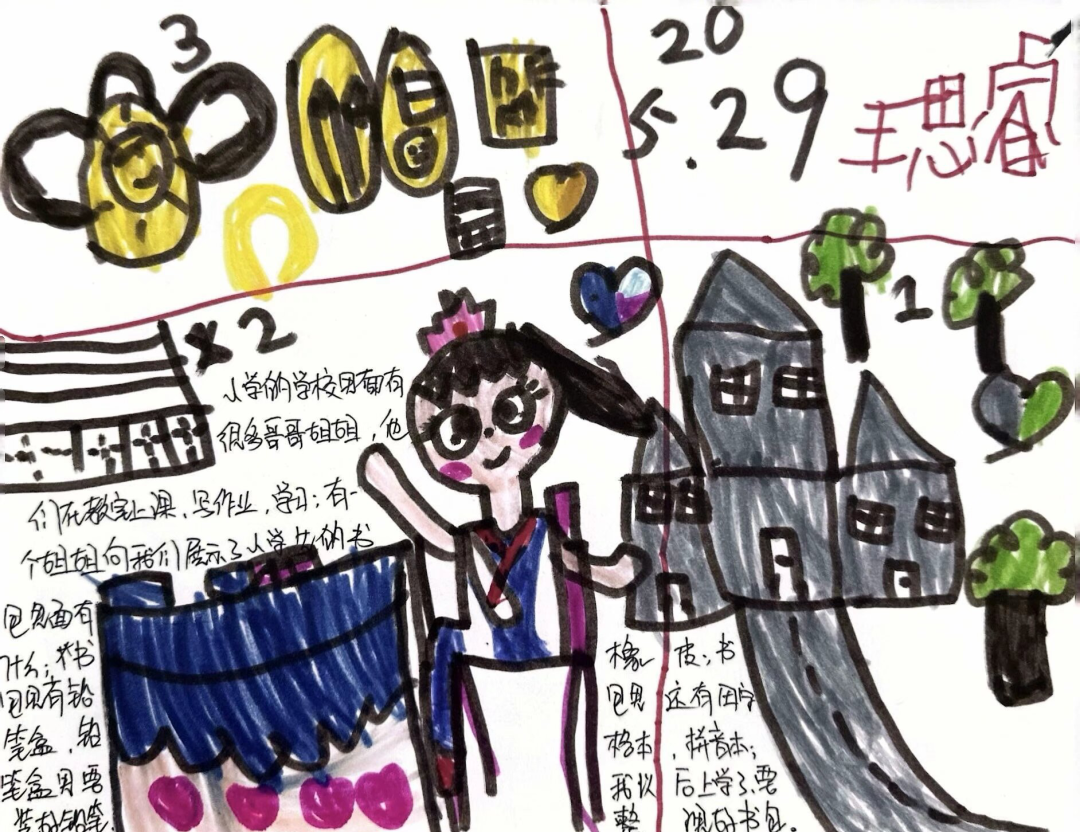 3
20
5.29
王思睿
1
×2
小学的学校里面有
很多哥哥姐姐，他
们在教室上课、写作业，学习；有一
个姐姐向我们展示了小学生的书
包里面有
什么；书
包里有铅
笔盒，铅
笔盒里要
装好铅笔、
橡皮；书
包里还有田字
格本，拼音本；
我以后上学了要
整理好书包。